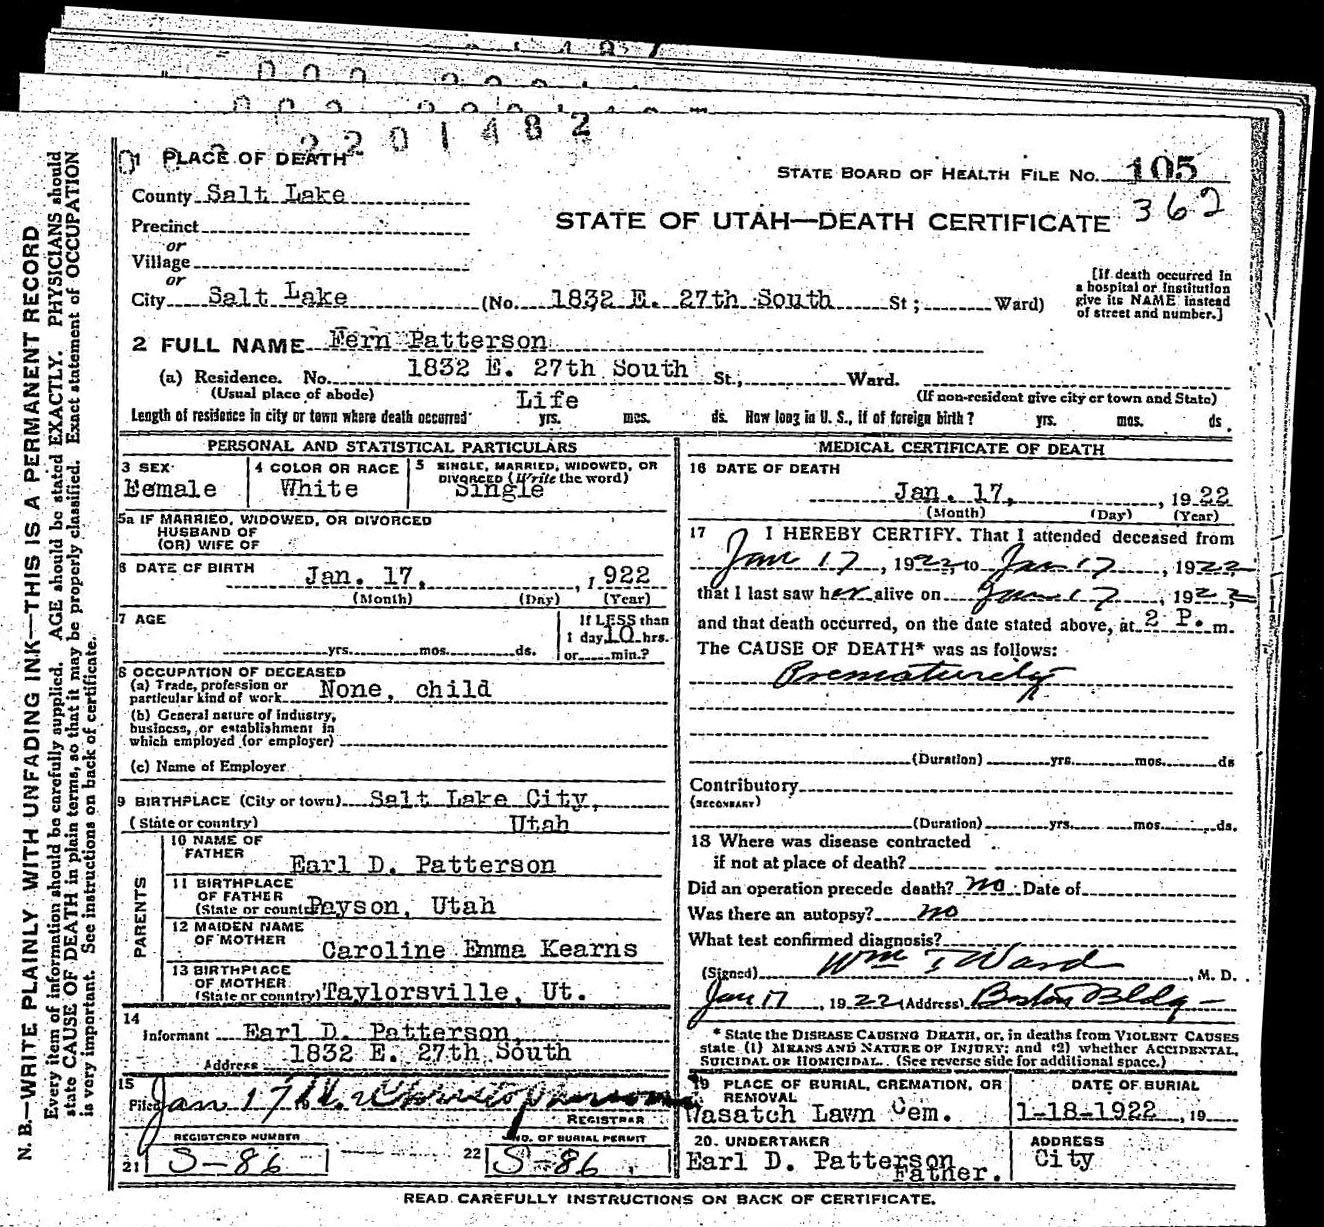 2201482
1 PLACE OF DEATH
STATE BOARD OF HEALTH FILE NO. 105
County Salt Lake
362
STATE OF UTAH—DEATH CERTIFICATE
Precinct
or
Village
or
City Salt Lake (No. 1832 E. 27th South St; Ward)
[If death occurred in
a hospital or institution
give its NAME instead
of street and number.]
2 FULL NAME Fern Patterson
(a) Residence. No. 1832 E. 27th South St., Ward.
(Usual place of abode) (If non-resident give city or town and State)
Length of residence in city or town where death occurred Life yrs. mos. ds. How long in U. S., if of foreign birth? yrs. mos. ds.
PERSONAL AND STATISTICAL PARTICULARS
3 SEX Female
4 COLOR OR RACE White
5 SINGLE, MARRIED, WIDOWED, OR
DIVORCED (Write the word)
Single
5a IF MARRIED, WIDOWED, OR DIVORCED
HUSBAND OF
(OR) WIFE OF
6 DATE OF BIRTH Jan. 17, 1922
(Month) (Day) (Year)
7 AGE
yrs. mos. ds.
If LESS than
1 day, 10 hrs.
or min.?
8 OCCUPATION OF DECEASED
(a) Trade, profession or
particular kind of work None, child
(b) General nature of industry,
business, or establishment in
which employed (or employer)
(c) Name of Employer
9 BIRTHPLACE (City or town) Salt Lake City,
(State or country) Utah
PARENTS
10 NAME OF
FATHER Earl D. Patterson
11 BIRTHPLACE
OF FATHER
(State or country) Payson, Utah
12 MAIDEN NAME
OF MOTHER Caroline Emma Kearns
13 BIRTHPLACE
OF MOTHER
(State or country) Taylorsville, Ut.
14
Informant Earl D. Patterson
Address 1832 E. 27th South
15
Filed Jan 17 19
REGISTRAR
REGISTERED NUMBER
21 S-86
NO. OF BURIAL PERMIT
22 S-86
MEDICAL CERTIFICATE OF DEATH
16 DATE OF DEATH
Jan. 17, 1922
(Month) (Day) (Year)
17 I HEREBY CERTIFY, That I attended deceased from
Jan 17, 1922, to Jan 17, 1922,
that I last saw her alive on Jan 17, 1922
and that death occurred, on the date stated above, at 2 P. m.
The CAUSE OF DEATH* was as follows:
Prematurely
(Duration) yrs. mos. ds
Contributory
(SECONDARY)
(Duration) yrs. mos. ds.
18 Where was disease contracted
if not at place of death?
Did an operation precede death? no Date of
Was there an autopsy? no
What test confirmed diagnosis?
(Signed) Wm T Ward, M. D.
Jan 17, 1922 (Address) Boston Bldg—
* State the DISEASE CAUSING DEATH, or, in deaths from VIOLENT CAUSES
state (1) MEANS AND NATURE OF INJURY; and (2) whether ACCIDENTAL,
SUICIDAL OR HOMICIDAL. (See reverse side for additional space.)
19 PLACE OF BURIAL, CREMATION, OR
REMOVAL
Wasatch Lawn Cem.
DATE OF BURIAL
1-18-1922, 19
20. UNDERTAKER
Earl D. Patterson
Father.
ADDRESS
City
READ CAREFULLY INSTRUCTIONS ON BACK OF CERTIFICATE.
N. B.—WRITE PLAINLY WITH UNFADING INK—THIS IS A PERMANENT RECORD
Every item of information should be carefully supplied. AGE should be stated EXACTLY. PHYSICIANS should
state CAUSE OF DEATH in plain terms, so that it may be properly classified. Exact statement of OCCUPATION
is very important. See instructions on back of certificate.